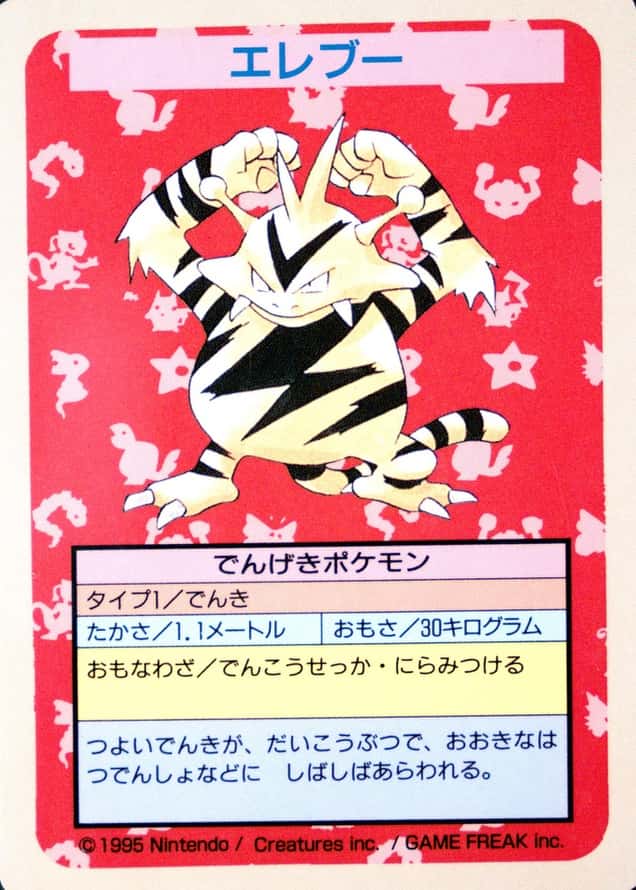 エレブー
でんげきポケモン
タイプ1／でんき
たかさ／1.1メートル
おもさ／30キログラム
おもなわざ／でんこうせっか・にらみつける
つよいでんきが、だいこうぶつで、おおきなは
つでんしょなどに　しばしばあらわれる。
©1995 Nintendo / Creatures inc. / GAME FREAK inc.